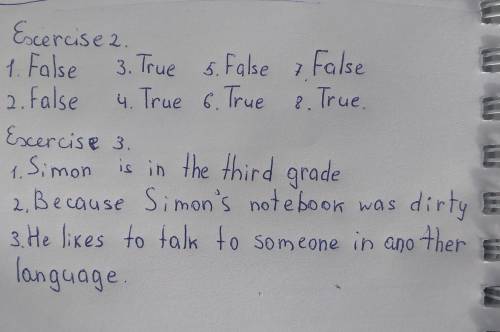 Excercise 2.
1. False 3. True 5. False 7. False
2. False 4. True 6. True 8. True.
Excercise 3.
1. Simon is in the third grade
2. Because Simon's notebook was dirty
3. He likes to talk to someone in another
language.